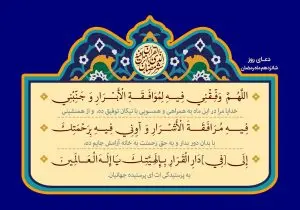 دعای روز
شانزدهم ماه رمضان
اللَّهُمَّ وَفِّقْنِي فِيهِ لِمُوَافَقَةِ الْأَبْرَارِ وَ جَنِّبْنِي
خدایا مرا در این ماه به همراهی و همسویی با نیکان توفیق ده، و از همنشینی
فِيهِ مُرَافَقَةَ الْأَشْرَارِ وَ آوِنِي فِيهِ بِرَحْمَتِكَ
با بدان دور بدار و به حق رحمتت به خانه آرامش جایم ده،
إِلَى (فِي) دَارِ الْقَرَارِ بِإِلَهِيَّتِكَ يَا إِلَهَ الْعَالَمِينَ
به پرستیدگی ات ای پرستیده جهانیان.